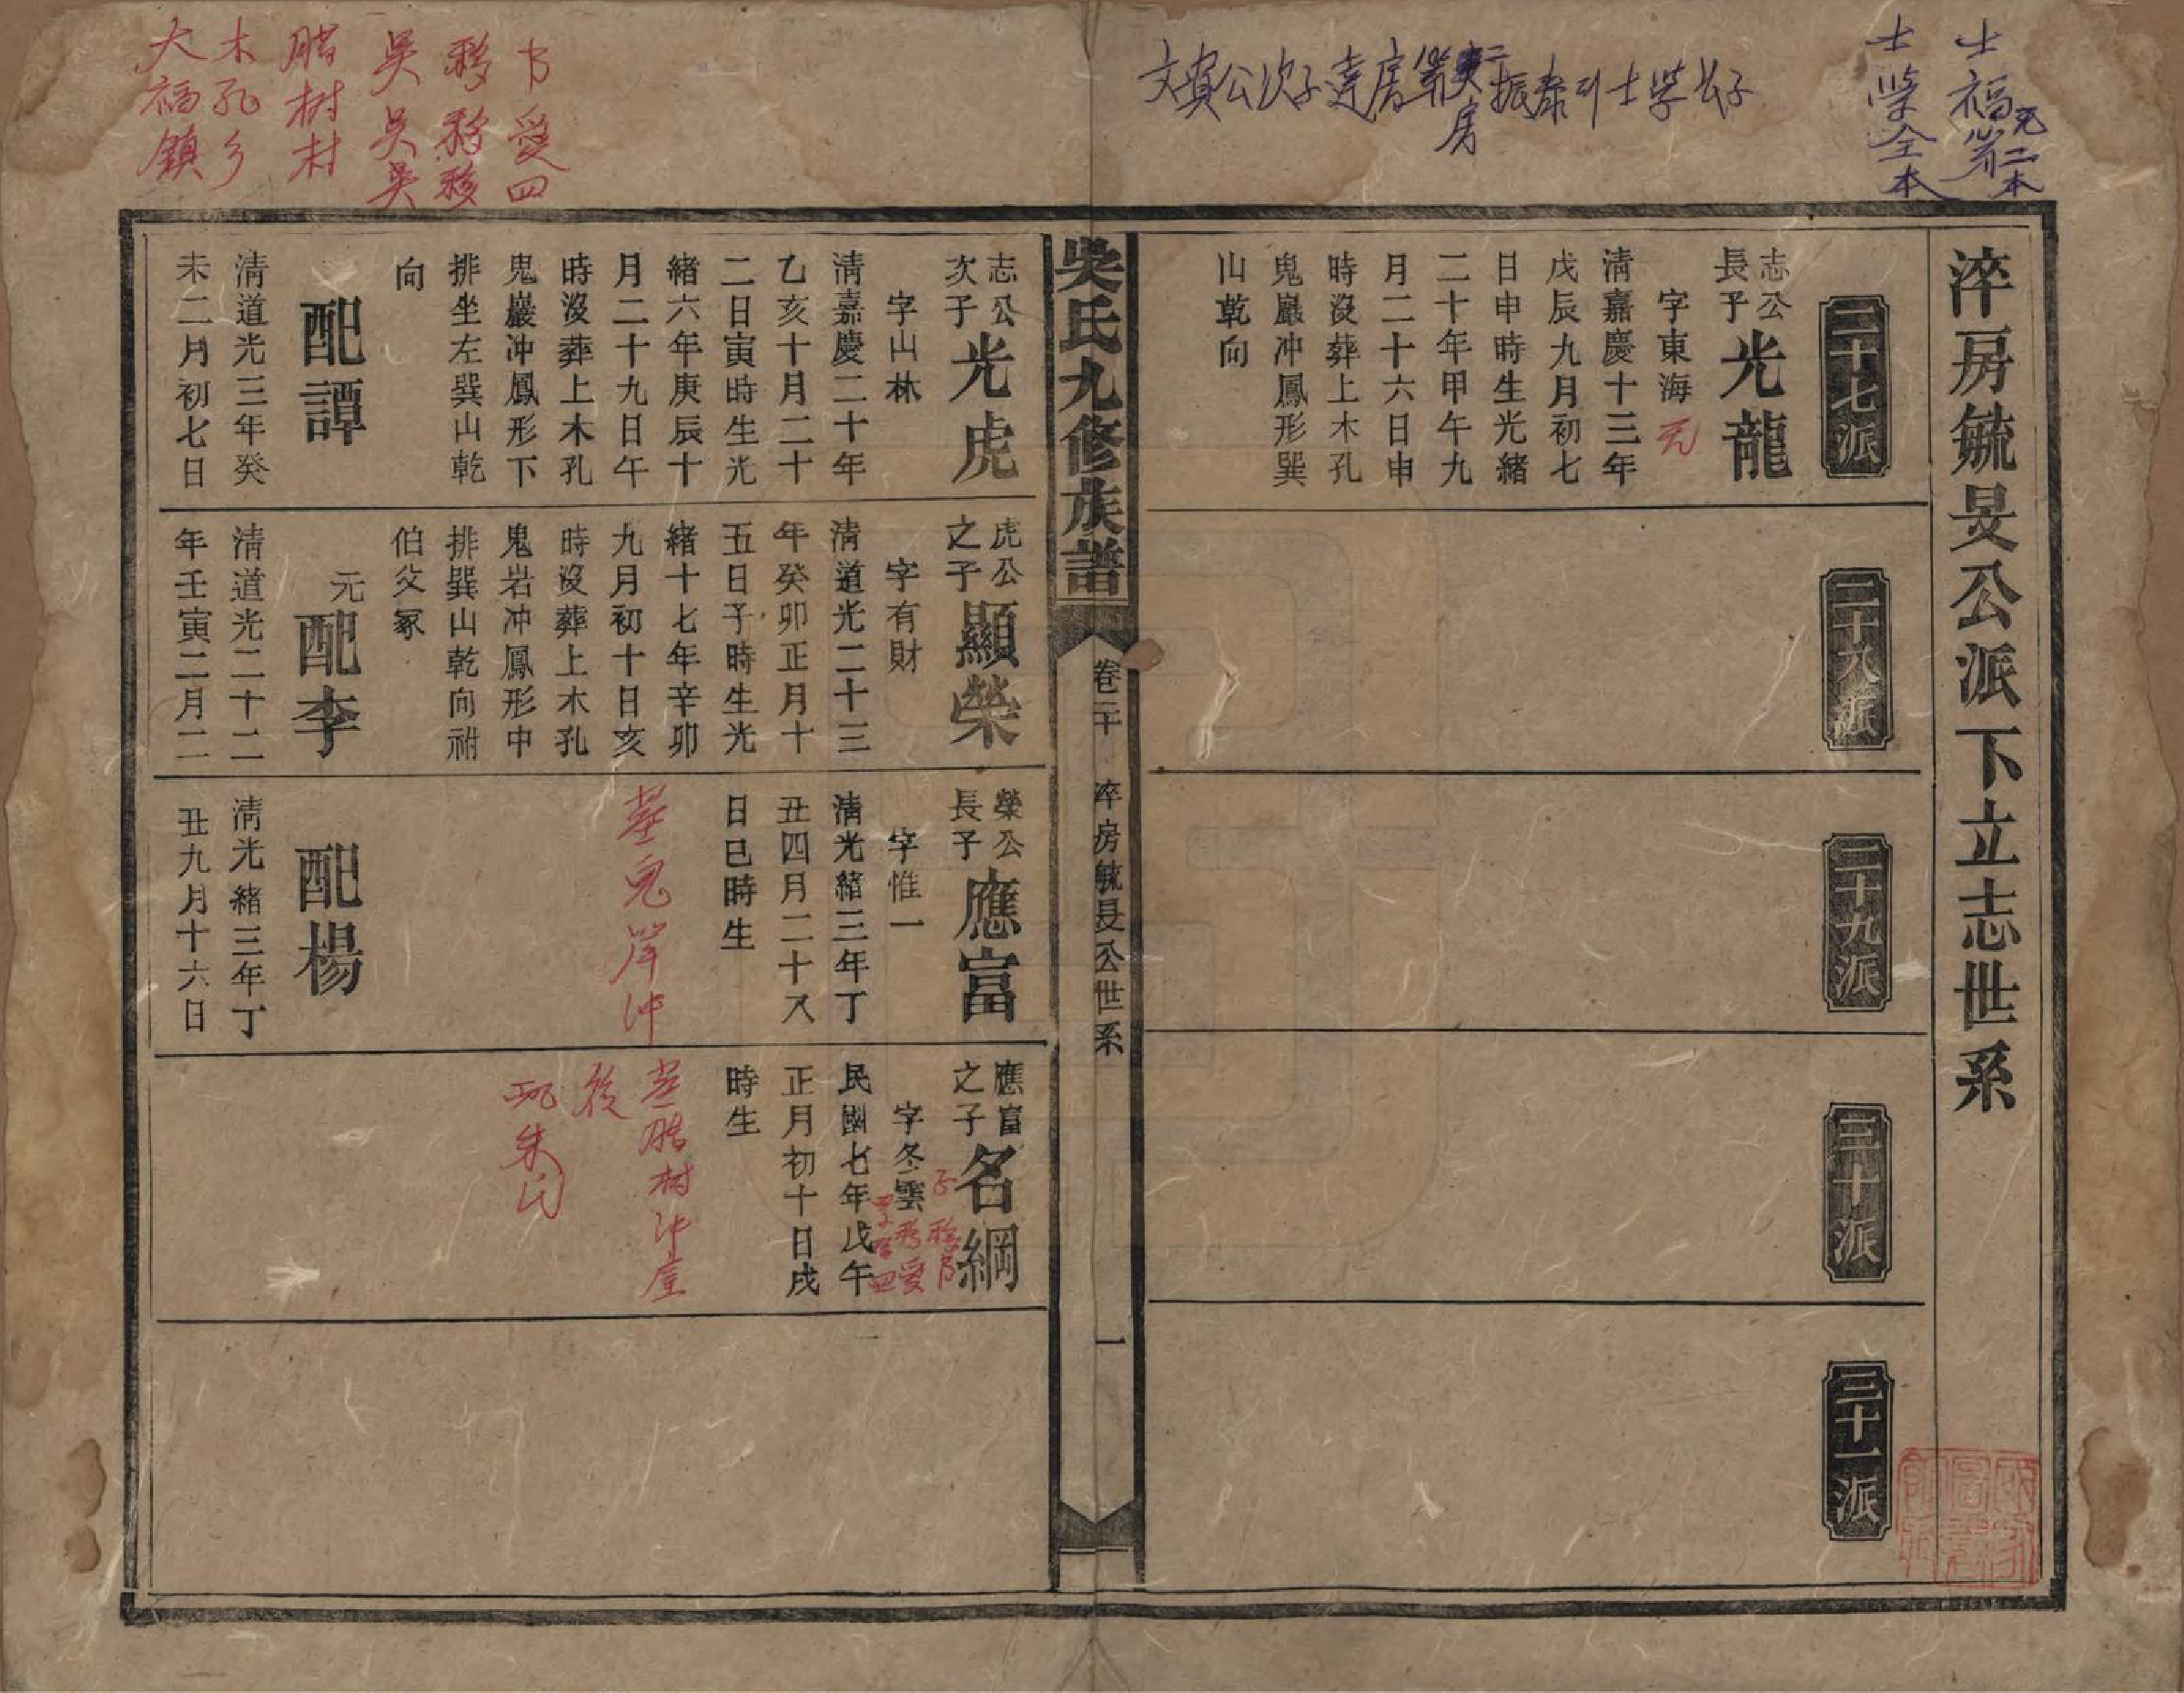 士福
二本
士学全本
文賓公次子達房
房
振泰
士学公子
淬房毓旻公派下立志世系
二十七派
二十八派
二十九派
三十派
三十一派
志公
長子
光龍
字東海
元
清嘉慶十三年
戊辰九月初七
日申時生光緒
二十年甲午九
月二十六日申
時沒葬上木孔
鬼巖冲鳳形巽
山乾向
吳氏九修族譜
卷二十
淬房毓旻公世系
一
志公
次子
光虎
字山林
清嘉慶二十年
乙亥十月二十
二日寅時生光
緒六年庚辰十
月二十九日午
時沒葬上木孔
鬼巖冲鳳形下
排坐左巽山乾
向
配譚
清道光三年癸
未二月初七日
虎公
之子
顯榮
字有財
清道光二十三
年癸卯正月十
五日子時生光
緒十七年辛卯
九月初十日亥
時沒葬上木孔
鬼岩冲鳳形中
排巽山乾向祔
伯父冢
元
配李
清道光二十二
年壬寅二月二
榮公
長子
應富
字惟一
清光緒三年丁
丑四月二十八
日巳時生
配楊
清光緒三年丁
丑九月十六日
應富
之子
名綱
字冬雲
民國七年戊午
正月初十日戌
時生
配朱氏
吳
吳
吳
树村
木孔乡
大福鎮